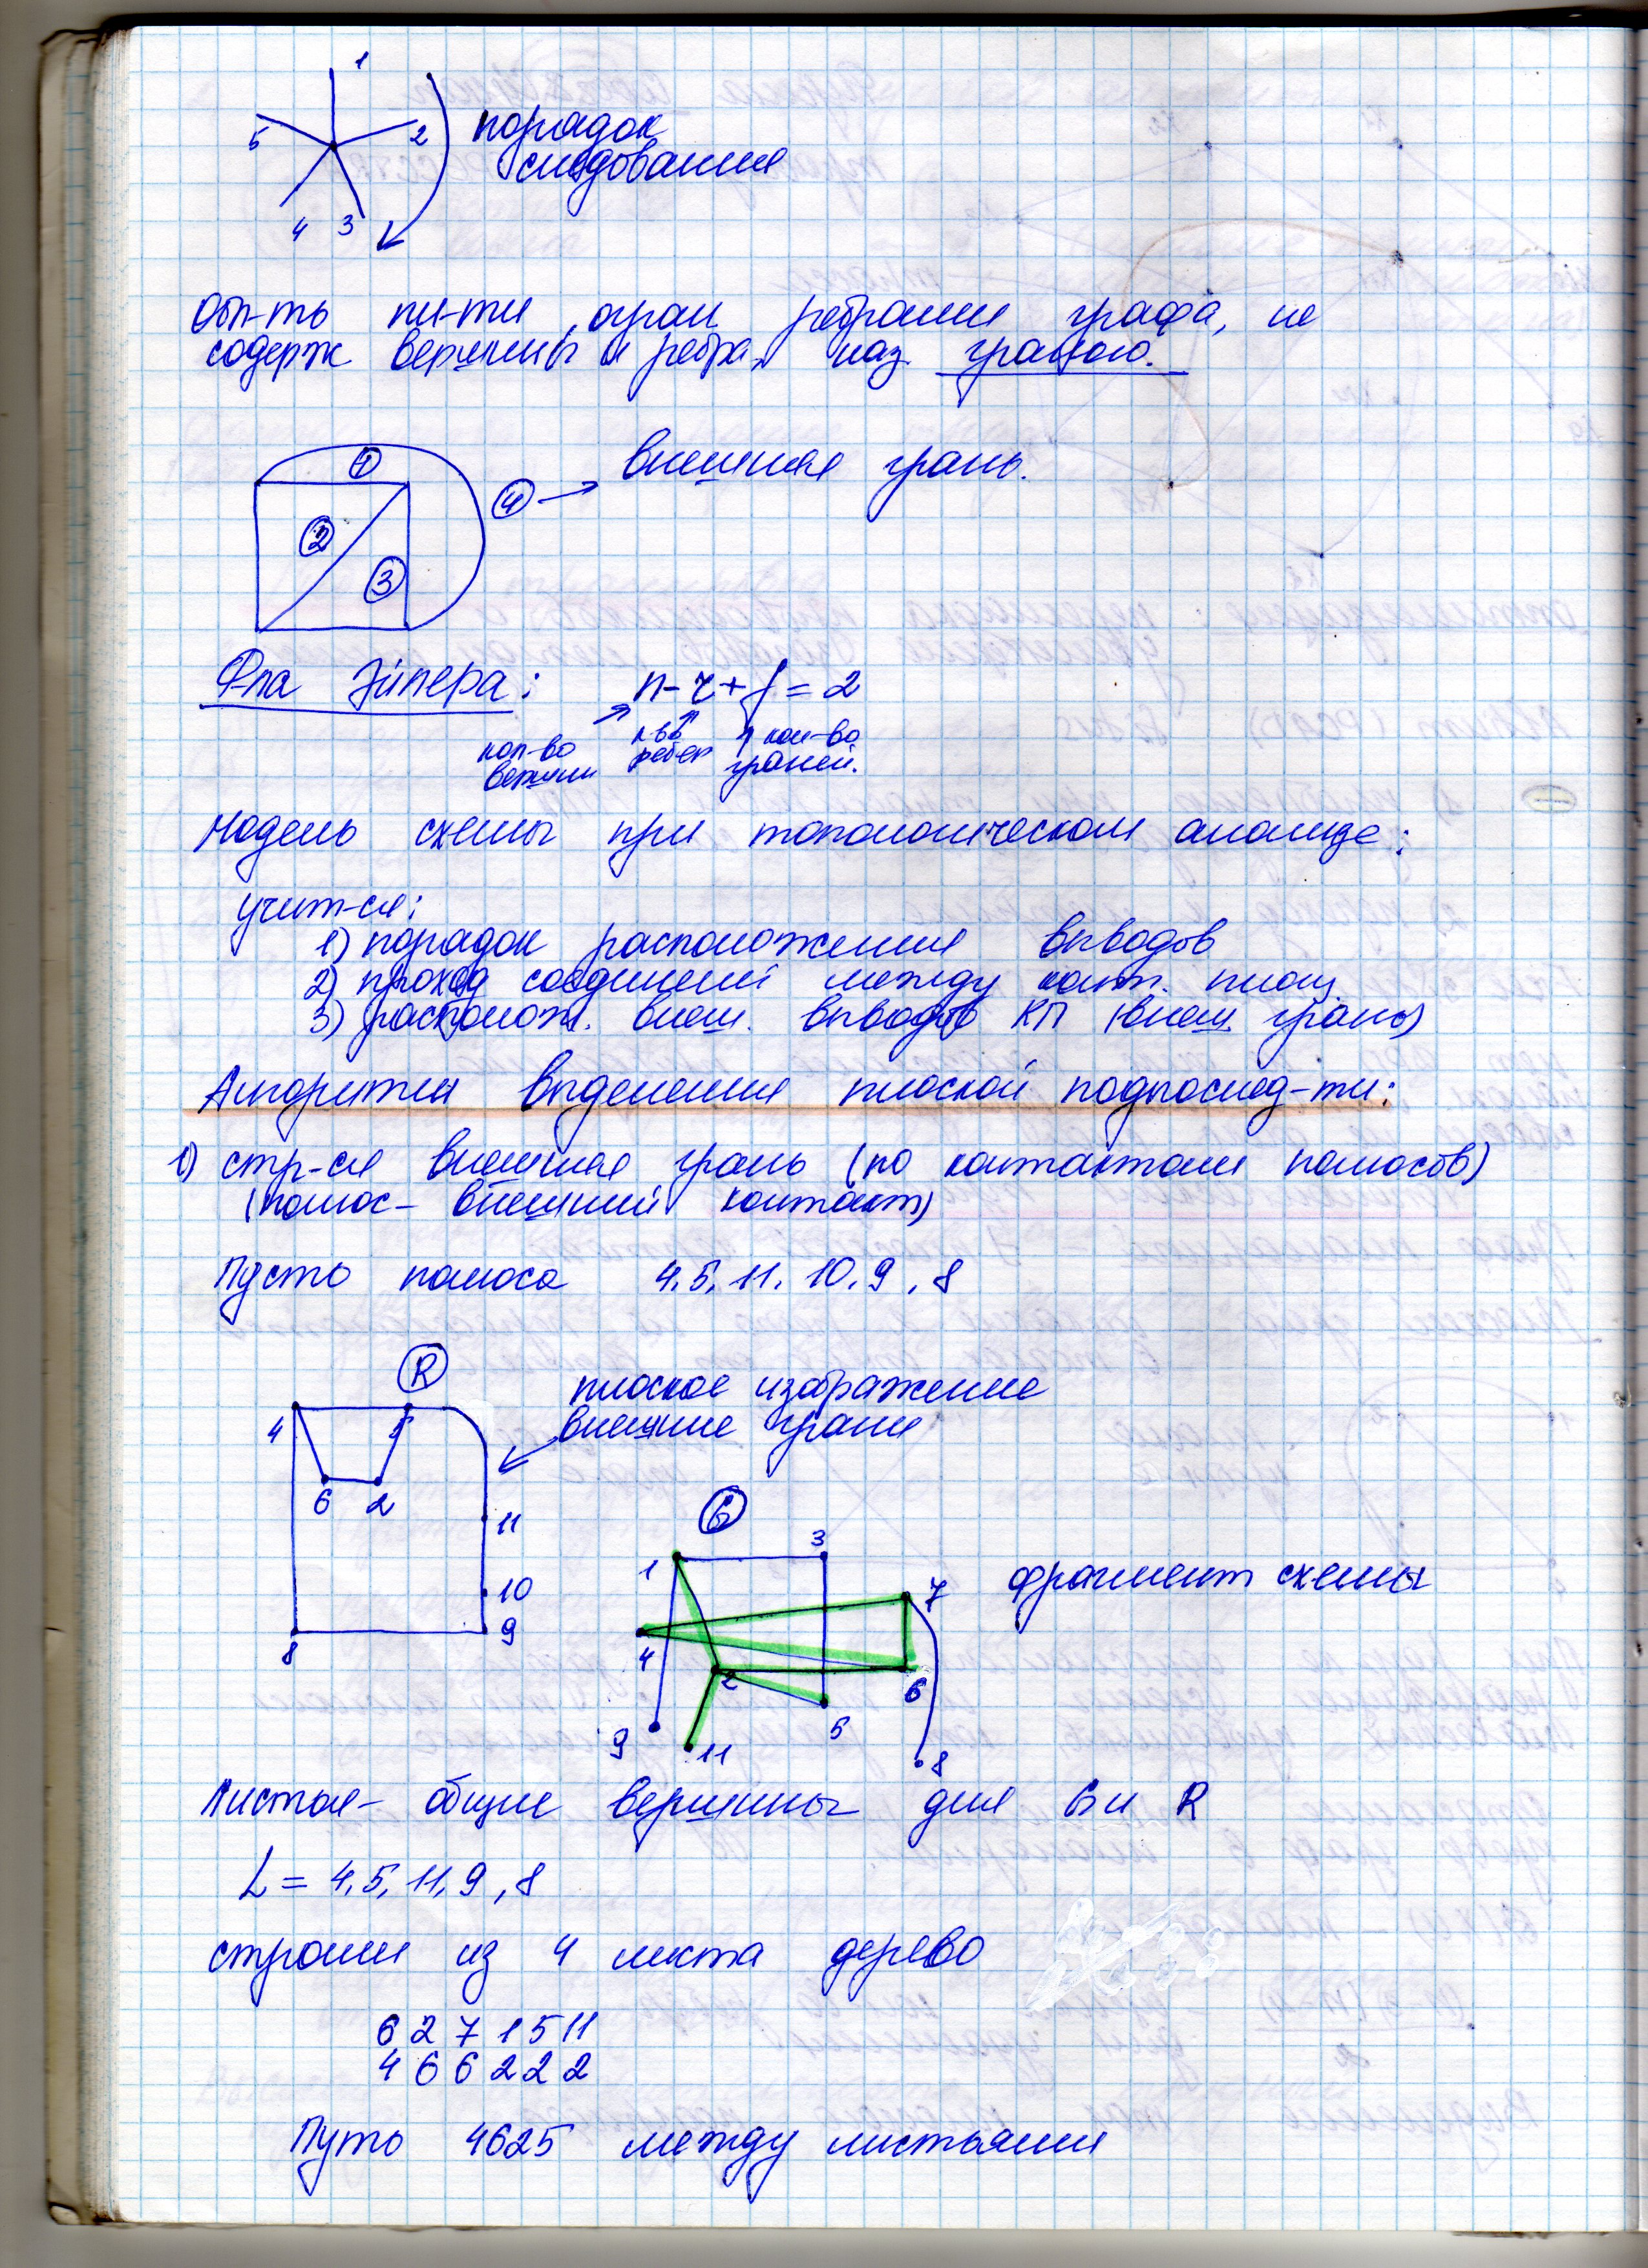 1
5
2
4
3
порядок
следования
Обл-ть пл-ти, огран ребрами графа, не
содерж вершины и ребра, наз. гранью.
1
2
3
4
внешняя грань.
Ф-ла Эйлера: n - r + f = 2
кол-во вершин
к-во ребер
кол-во граней.
Модель схемы при топологическом анализе:
учит-ся:
1) порядок расположения выводов
2) проход соединений между конт. площ.
3) располож. внеш. выводов КП (внеш. грань)
Алгоритм выделения плоской подпослед-ти:
1) стр-ся внешняя грань (по контактам полюсов)
(полюс - внешний контакт)
Пусть полюса 4, 5, 11, 10, 9, 8
R
4
5
6 2
11
10
8
9
плоское изображение
внешние грани
G
1
3
7
4
2
6
5
9
11
8
фрагмент схемы
Листья - общие вершины для G и R
L = 4, 5, 11, 9, 8
строим из 4 листа дерево
6 2 7 1 5 11
4 6 6 2 2 2
Путь 4625 между листьями